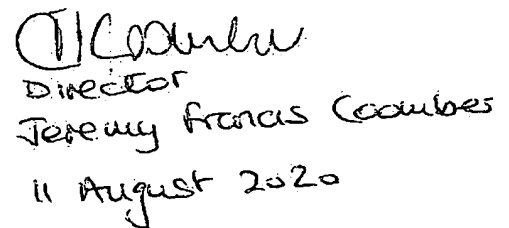 Director
Jeremy Francis Coombes
11 August 2020